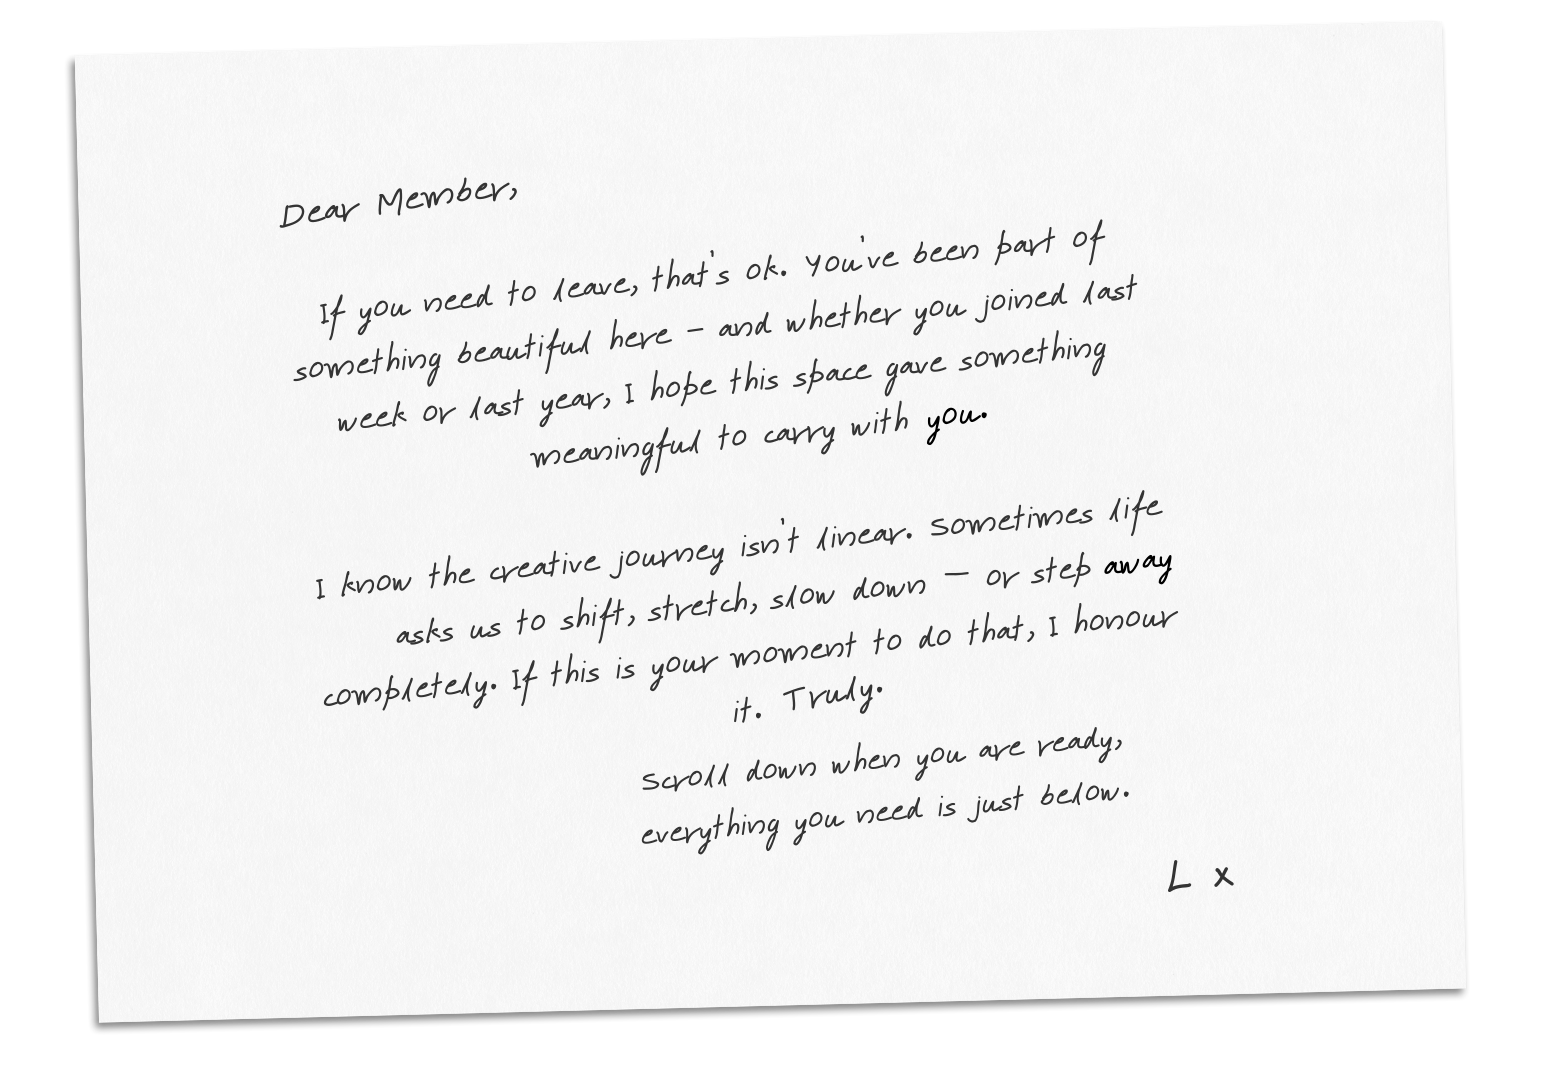 Dear Member,
If you need to leave, that's ok. You've been part of
something beautiful here – and whether you joined last
week or last year, I hope this space gave something
meaningful to carry with you.
I know the creative journey isn't linear. Sometimes life
asks us to shift, stretch, slow down – or step away
completely. If this is your moment to do that, I honour
it. Truly.
Scroll down when you are ready,
everything you need is just below.
L x